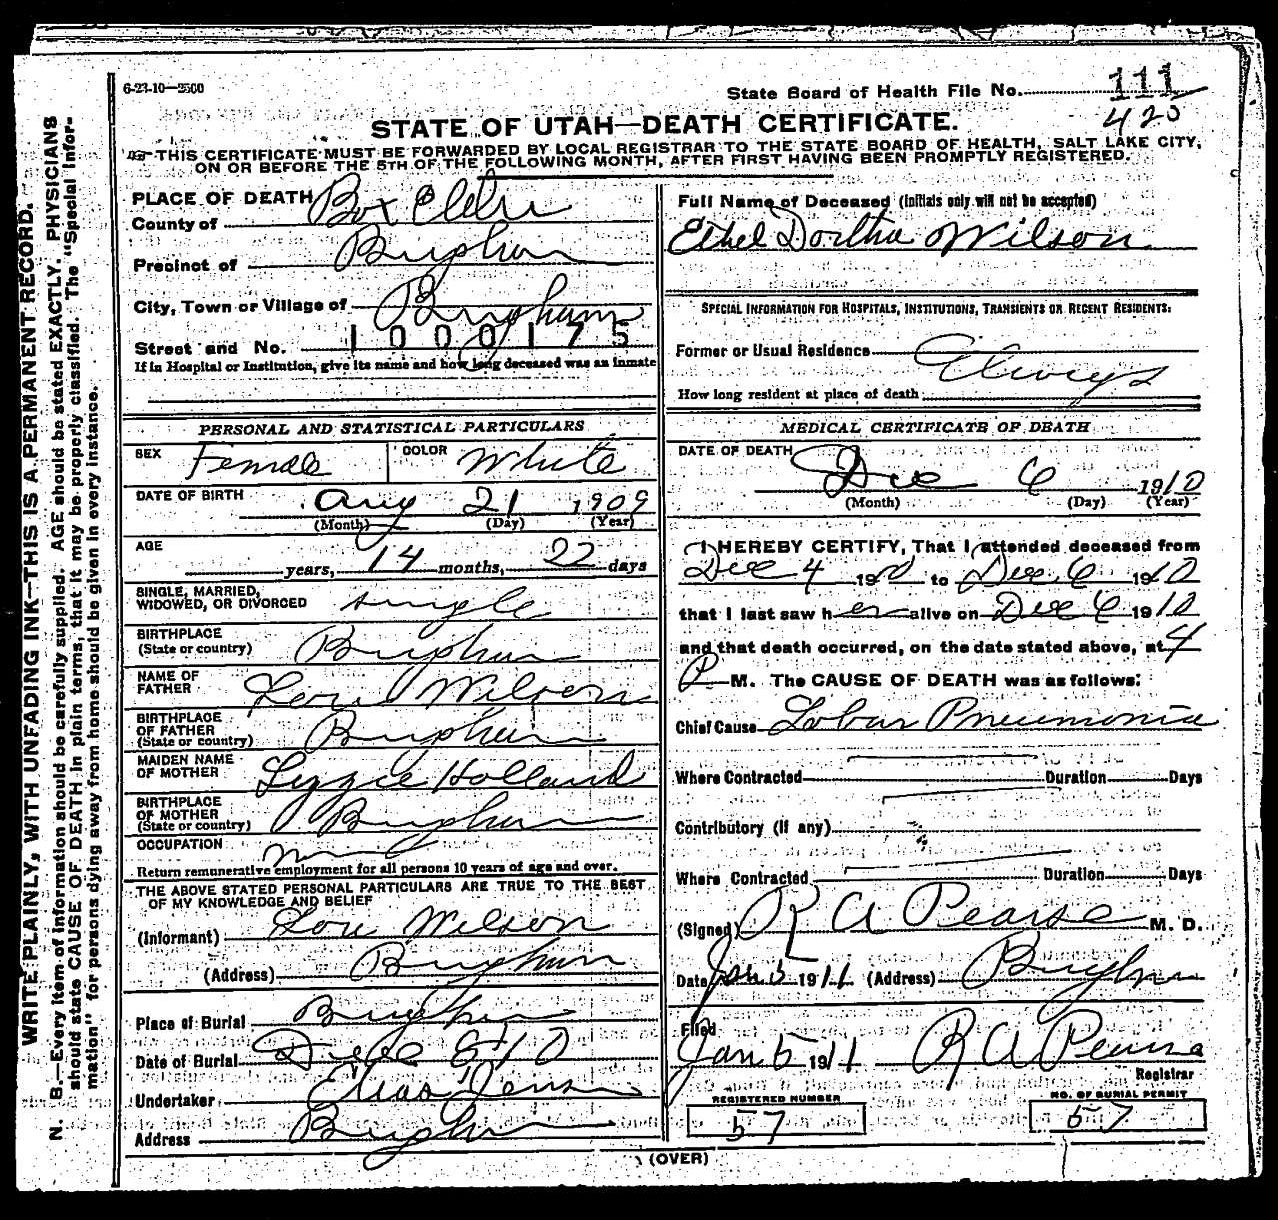 6-23-10—2500
State Board of Health File No. 111
420
STATE OF UTAH—DEATH CERTIFICATE.
THIS CERTIFICATE MUST BE FORWARDED BY LOCAL REGISTRAR TO THE STATE BOARD OF HEALTH, SALT LAKE CITY,
ON OR BEFORE THE 5TH OF THE FOLLOWING MONTH, AFTER FIRST HAVING BEEN PROMPTLY REGISTERED.
WRITE PLAINLY, WITH UNFADING INK—THIS IS A PERMANENT RECORD.
N. B.—Every item of information should be carefully supplied. AGE should be stated EXACTLY. PHYSICIANS
should state CAUSE OF DEATH in plain terms, that it may be properly classified. The "Special Infor-
mation" for persons dying away from home should be given in every instance.
PLACE OF DEATH
County of Box Elder
Precinct of Brigham
City, Town or Village of Brigham
Street and No.
1000175
If in Hospital or Institution, give its name and how long deceased was an inmate
PERSONAL AND STATISTICAL PARTICULARS
SEX Female COLOR White
DATE OF BIRTH Aug 21 1909
(Month) (Day) (Year)
AGE
years, 14 months, 22 days
SINGLE, MARRIED,
WIDOWED, OR DIVORCED single
BIRTHPLACE
(State or country) Brigham
NAME OF
FATHER Wilson
BIRTHPLACE
OF FATHER
(State or country) Brigham
MAIDEN NAME
OF MOTHER Lizzie Holland
BIRTHPLACE
OF MOTHER
(State or country) Brigham
OCCUPATION
Return remunerative employment for all persons 10 years of age and over.
THE ABOVE STATED PERSONAL PARTICULARS ARE TRUE TO THE BEST
OF MY KNOWLEDGE AND BELIEF
(Informant) Wilson
(Address) Brigham
Place of Burial Brigham
Date of Burial Dec 8 10
Undertaker Elias Jensen
Address Brigham
Full Name of Deceased (Initials only will not be accepted)
Ethel Dortha Wilson
SPECIAL INFORMATION FOR HOSPITALS, INSTITUTIONS, TRANSIENTS OR RECENT RESIDENTS:
Former or Usual Residence
How long resident at place of death Always
MEDICAL CERTIFICATE OF DEATH
DATE OF DEATH
Dec 6 1910
(Month) (Day) (Year)
I HEREBY CERTIFY, That I attended deceased from
Dec 4 1910 to Dec 6 1910
that I last saw her alive on Dec 6 1910
and that death occurred, on the date stated above, at 4
P M. The CAUSE OF DEATH was as follows:
Chief Cause Lobar Pneumonia
Where Contracted Duration Days
Contributory (if any)
Where Contracted Duration Days
(Signed) R A Pearse M. D.
Date Jan 5 1911 (Address) Brigham
Filed
Jan 5 1911 R A Pearse
Registrar
REGISTERED NUMBER
57
NO. OF BURIAL PERMIT
57
(OVER)